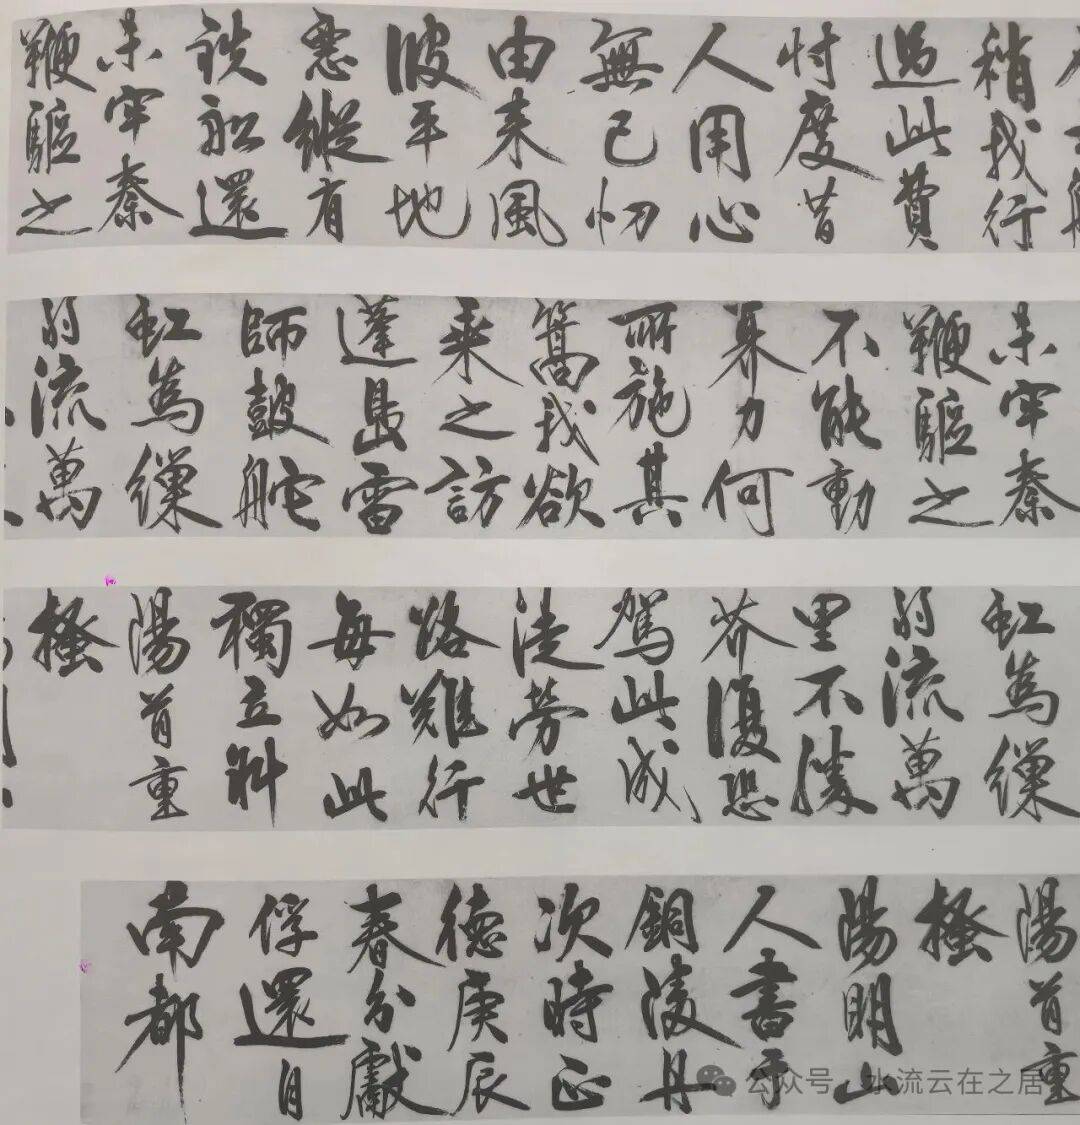 稍我行
過此費
忖度昔
人用心
無已忉
由来風
波平地
惡縱有
鉄船還
未牢秦
鞭驅之
未牢秦
鞭驅之
不能動
奡力何
所施其
篙我欲
乗之訪
蓬島雷
師鼓舵
虹為繅
弱流萬
虹為繅
弱流萬
里不勝
芥復恐
駕此成
徒勞世
路難行
每如此
獨立斜
陽首重
搔
陽首重
搔
陽明山
人書于
銅陵舟
次時正
德庚辰
春分獻
俘還自
南都
公众号·水流云在之居